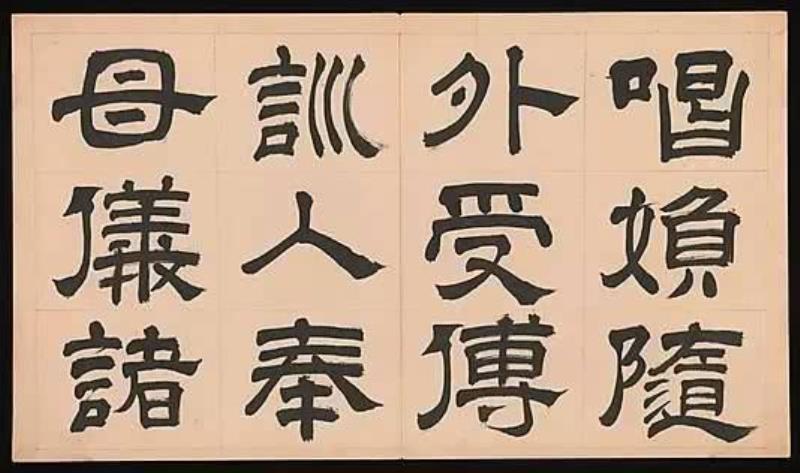 唱媍隨
外受傅
訓人奉
母儀諸